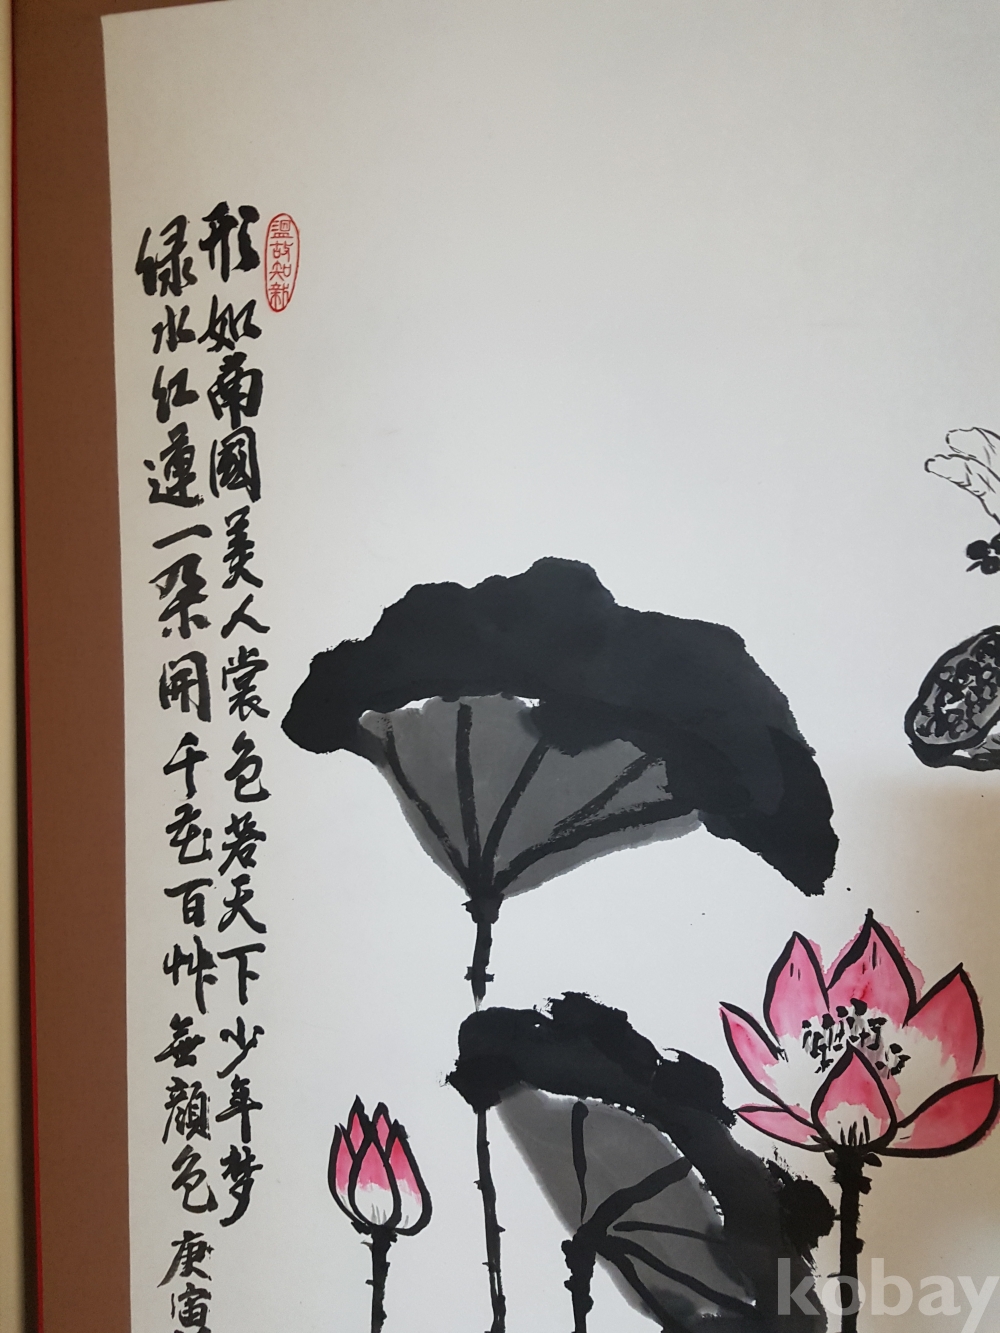 溫故知新
形如南國美人裳色若天下少年梦
绿水红蓮一朵開千花百艸無顔色庚寅
kobay